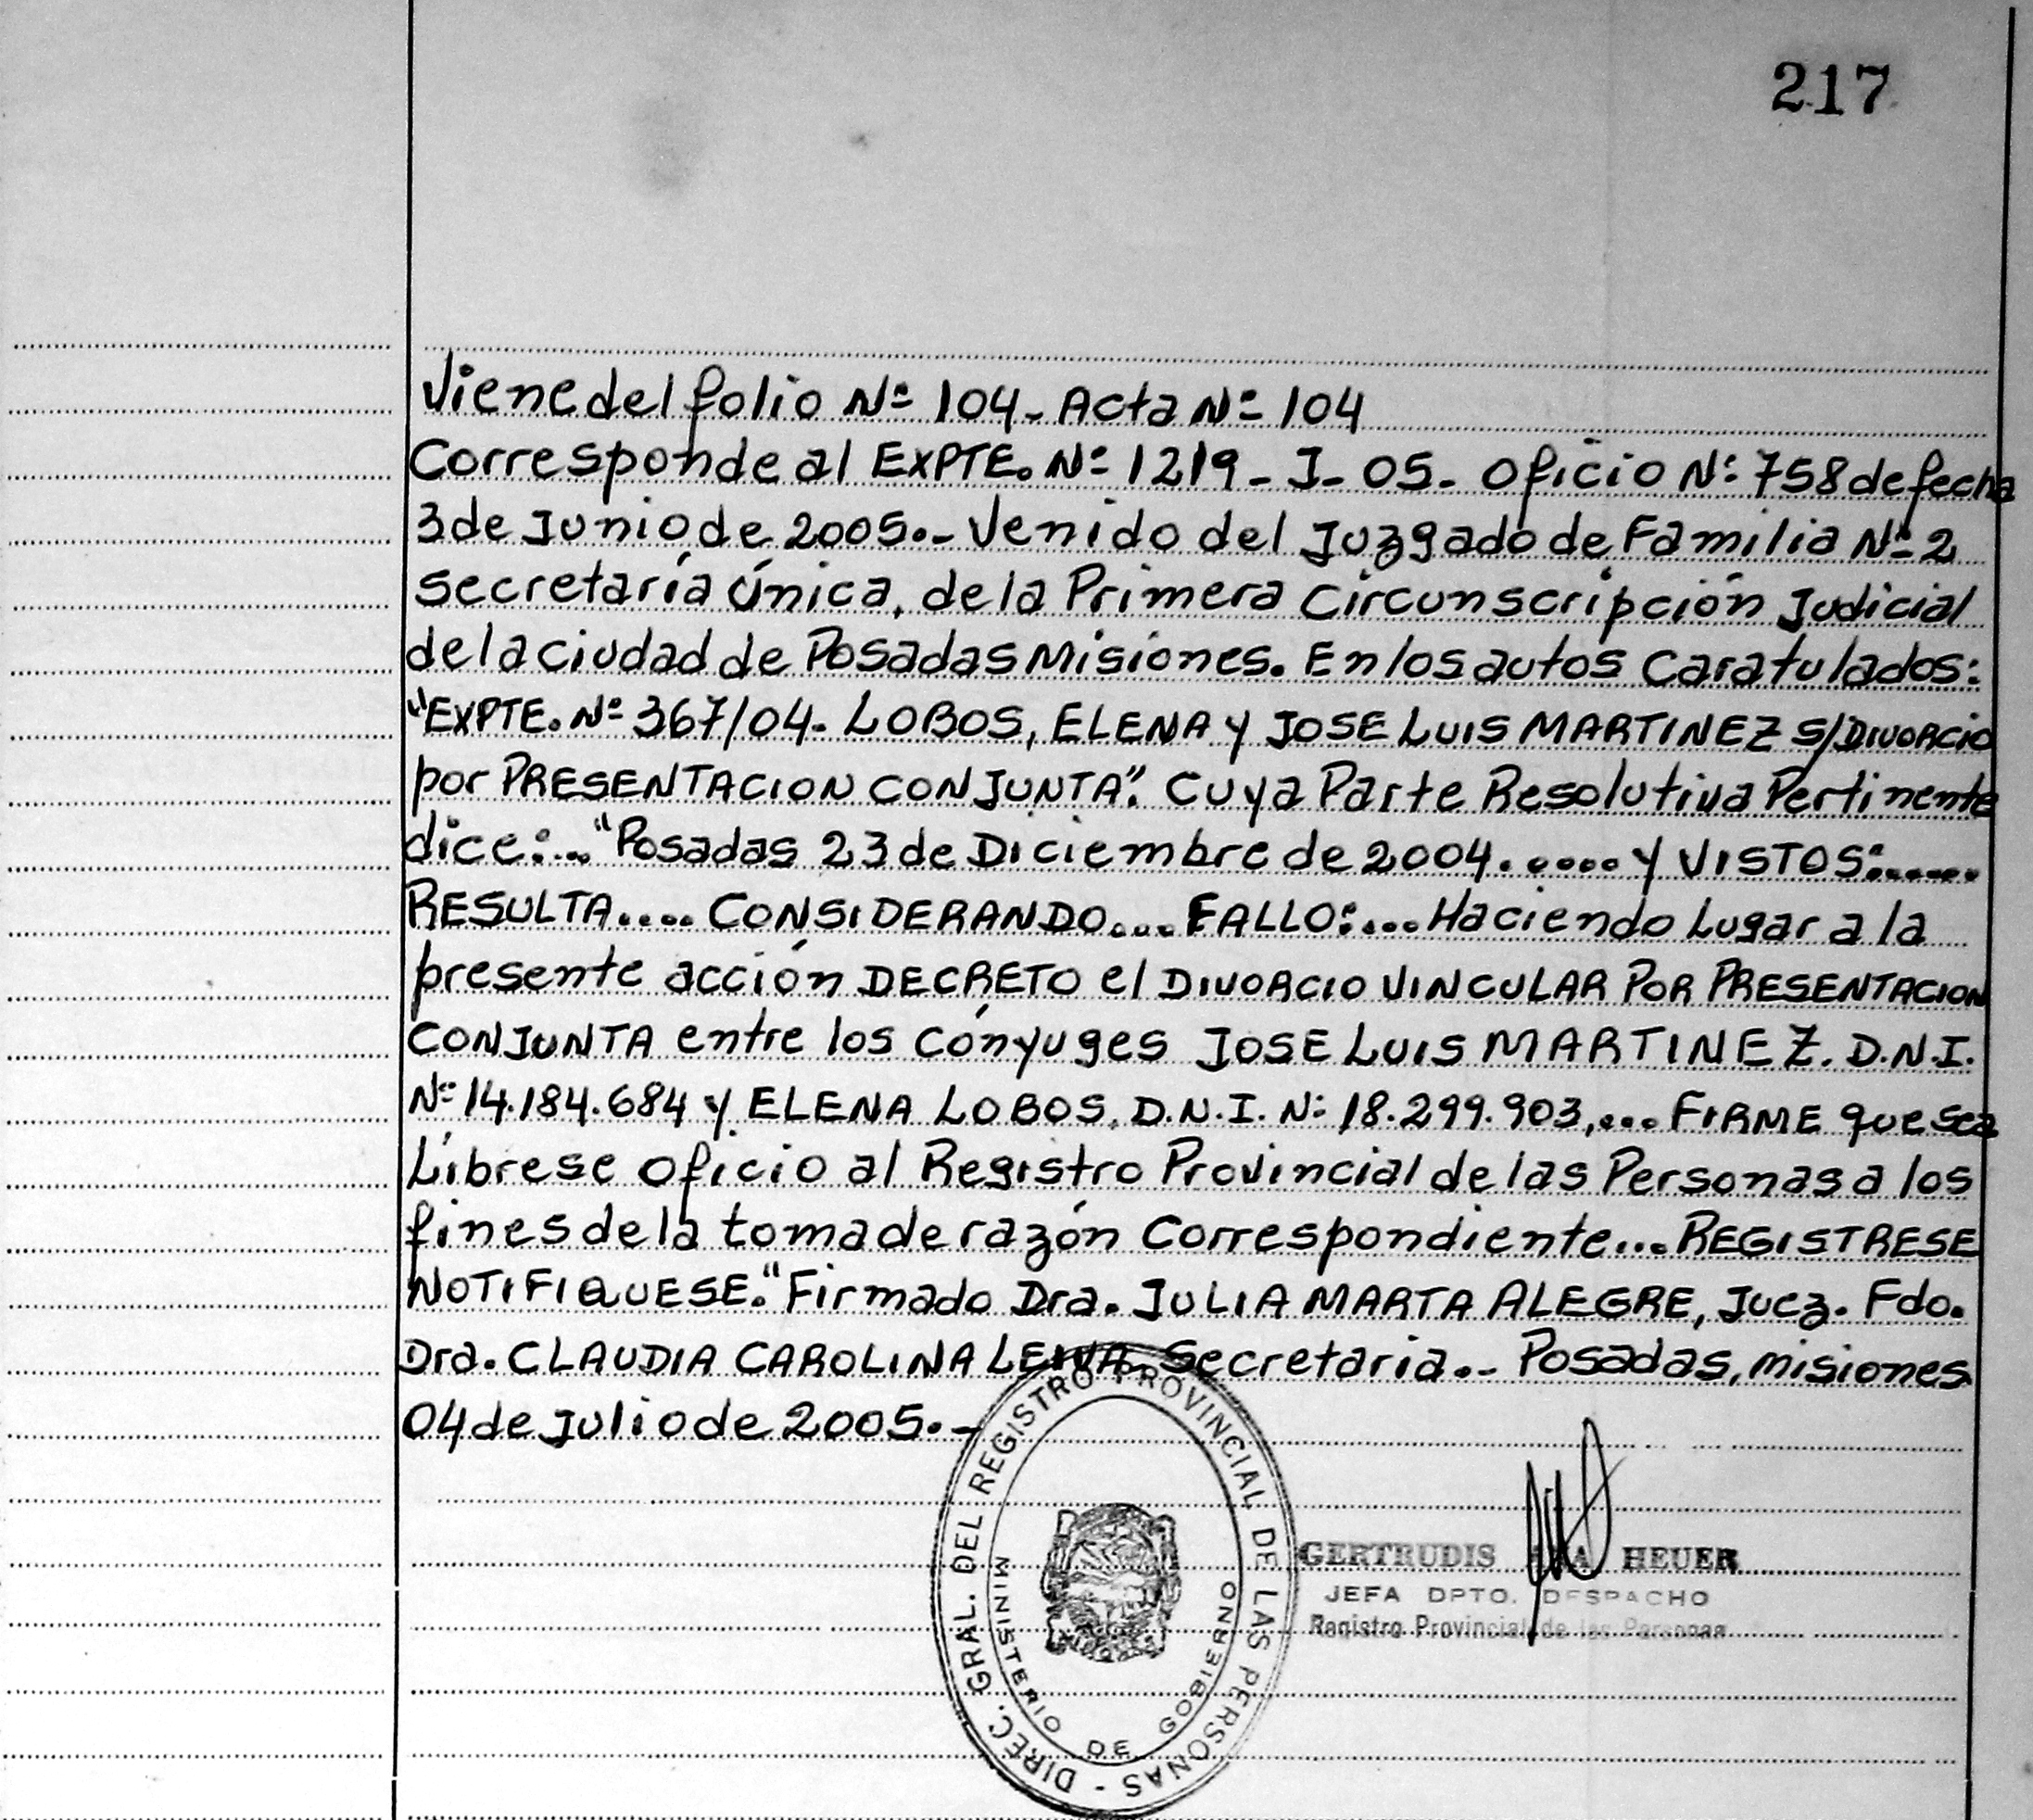 217
Viene del folio Nº 104 - Acta Nº 104
Corresponde al EXPTE. Nº 1219 - I - 05 - Oficio Nº 758 de fecha
3 de Junio de 2005.- Venido del Juzgado de Familia Nº 2
secretaría Única, de la Primera Circunscripción Judicial
de la ciudad de Posadas Misiones. En los autos Caratulados:
"EXPTE. Nº 367/04. LOBOS, ELENA y JOSE LUIS MARTINEZ S/DIVORCIO
por PRESENTACION CONJUNTA". Cuya Parte Resolutiva Pertinente
dice:... "Posadas 23 de Diciembre de 2004..... y VISTOS:......
RESULTA.... CONSIDERANDO.... FALLO:.... Haciendo Lugar a la
presente acción DECRETO el DIVORCIO VINCULAR POR PRESENTACION
CONJUNTA entre los Cónyuges JOSE LUIS MARTINEZ. D.N.I.
Nº 14.184.684 y ELENA LOBOS. D.N.I. Nº 18.299.903,... FIRME que sea
Líbrese oficio al Registro Provincial de las Personas a los
fines de la toma de razón Correspondiente... REGISTRESE
NOTIFIQUESE." Firmado Dra. JULIA MARTA ALEGRE, Juez. Fdo.
Dra. CLAUDIA CAROLINA LEIVA. Secretaria.- Posadas, misiones
04 de Julio de 2005.-
DIREC. GRAL. DEL REGISTRO PROVINCIAL DE LAS PERSONAS -
MINISTERIO DE GOBIERNO
GERTRUDIS HEUER
JEFA DPTO. DESPACHO
Registro Provincial de las Personas